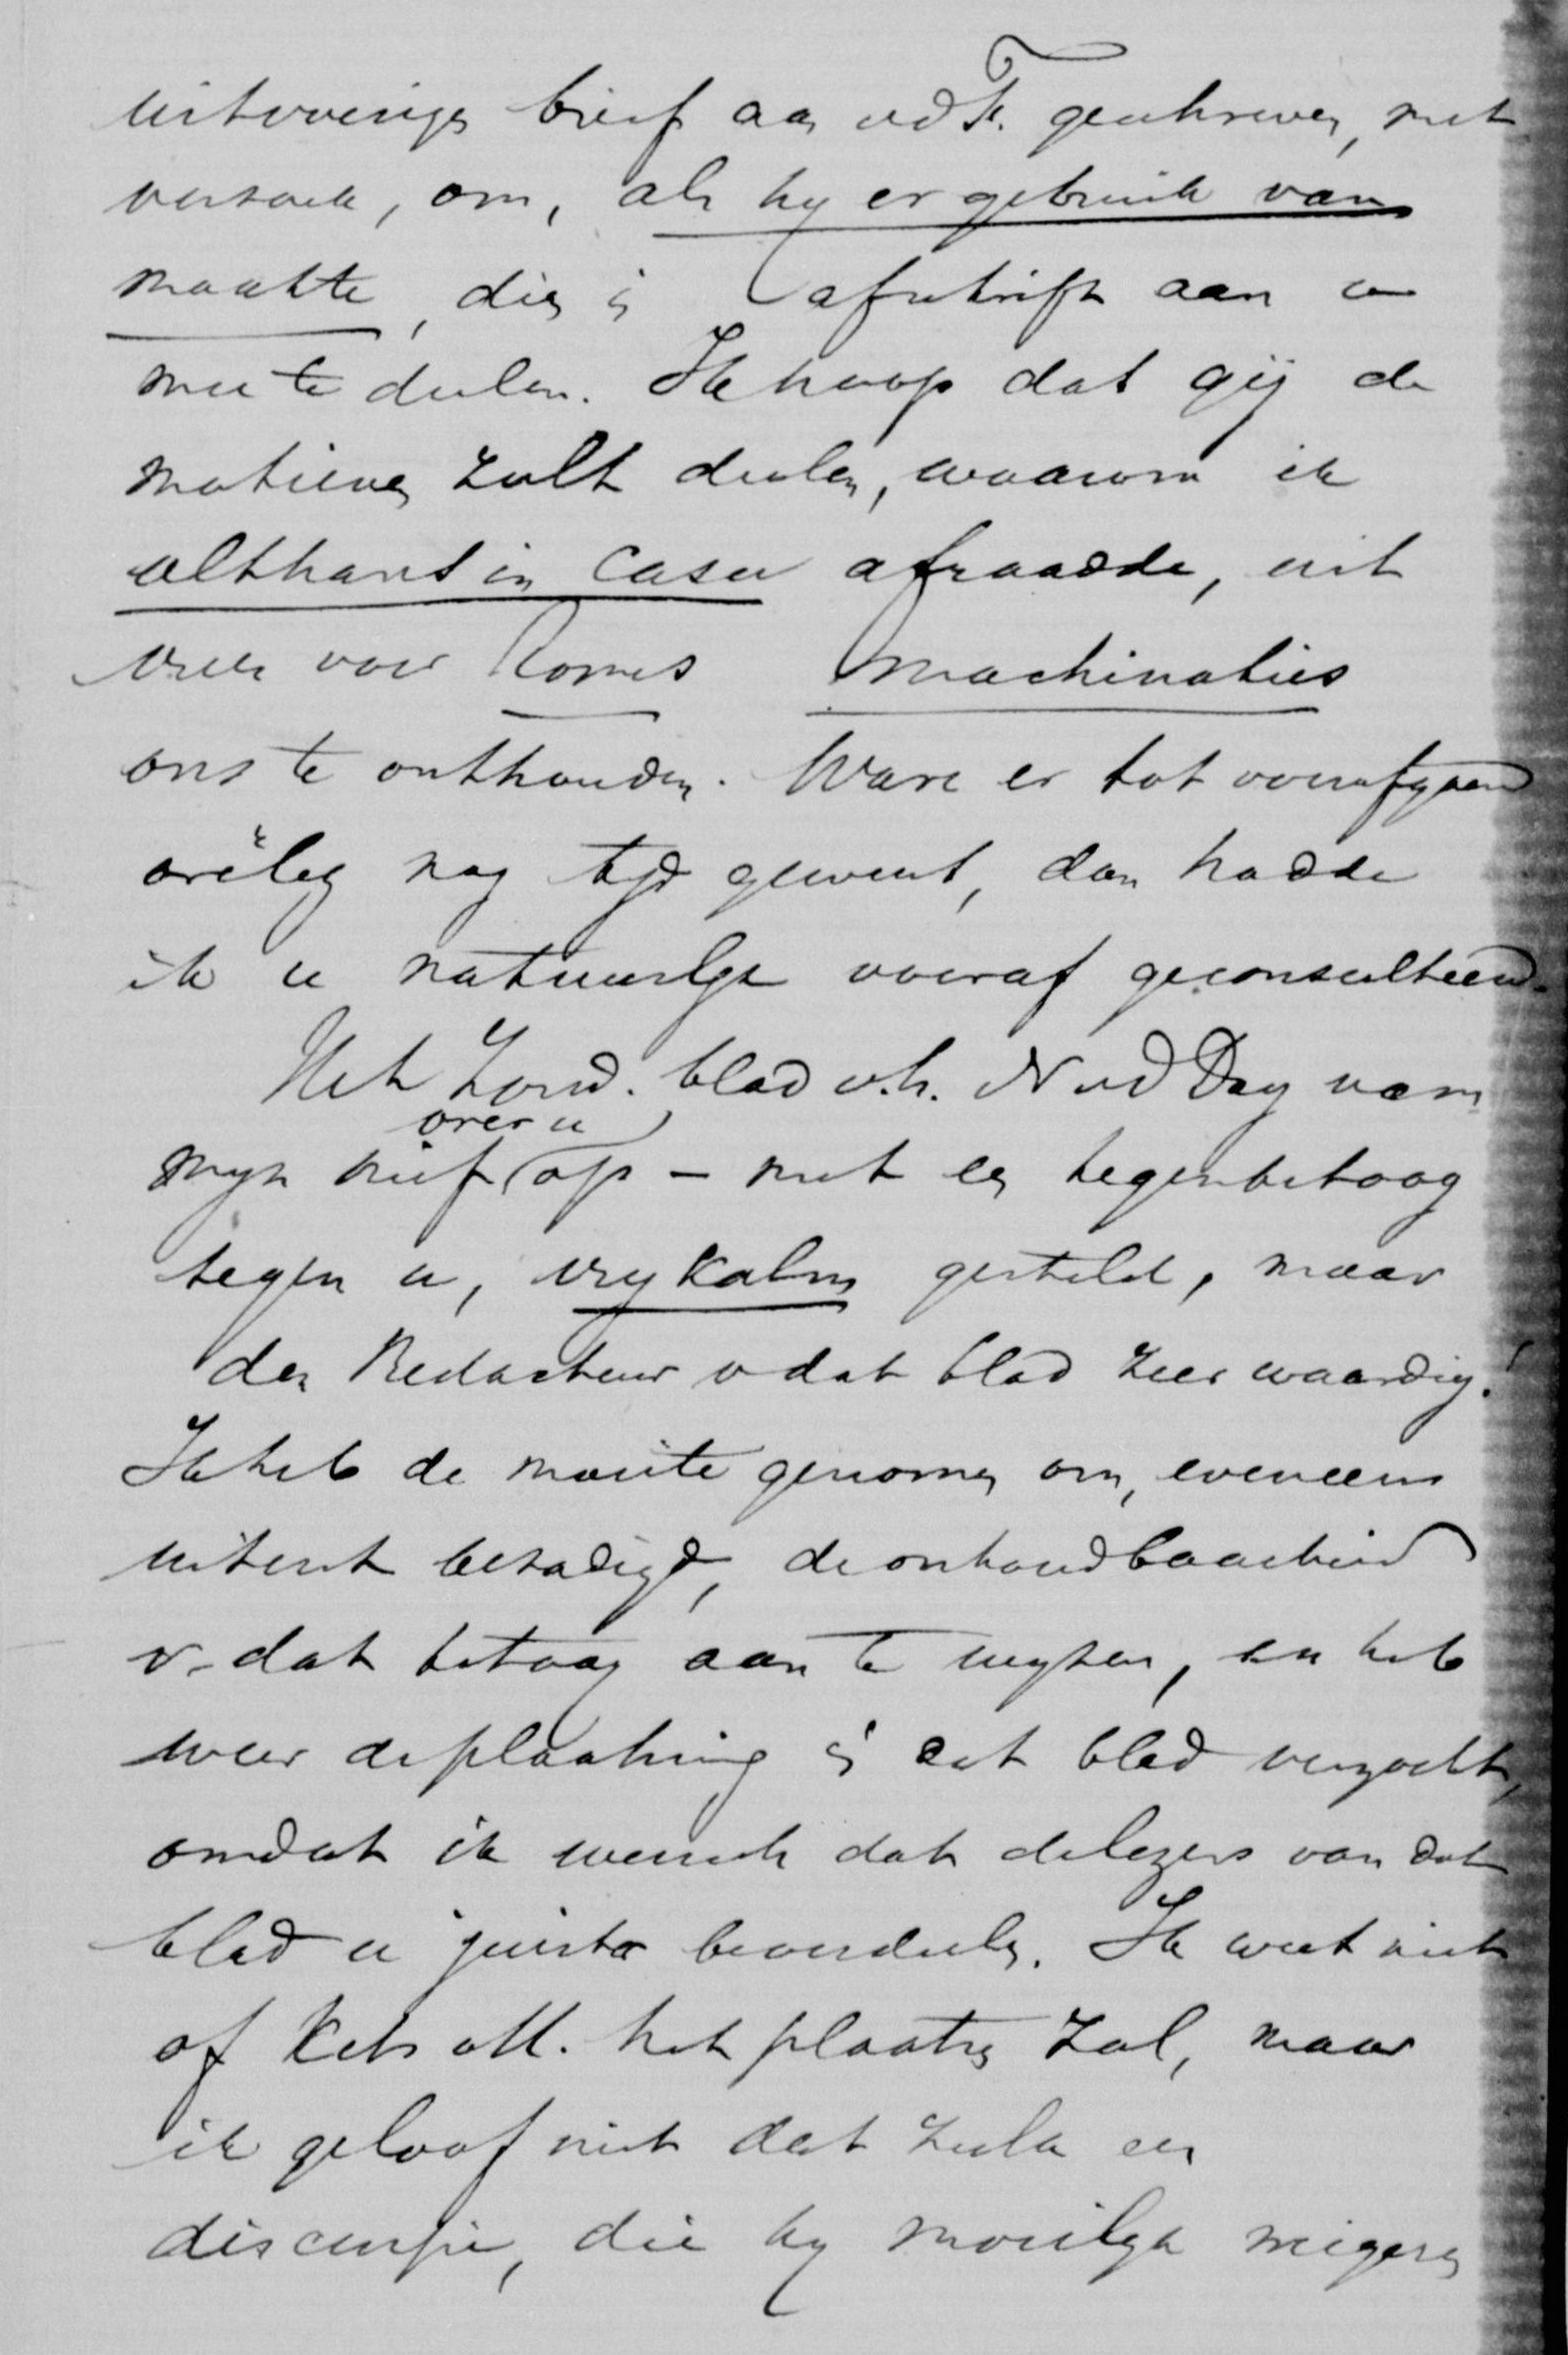 uitvoerige brief aan vd F. geschreven, met
verzoek, om, als hy er gebruik van
maakte, dien in afschrift aan u
mee te deelen. Ik hoop dat gij de
motieven zult deelen, waarom ik
althans in casu afraadde, uit
vrees voor Romes machinaties
ons te onthouden. Ware er tot voorafgaand
overleg nog tyd geweest, dan hadde
ik u natuurlyk vooraf geconsulteerd.
Het Zond. blad v.h. N vd Dag nam
over u
myn brief op – met een tegenbetoog
tegen u, vry kalm gesteld, maar
den Redacteur v dat blad zeer waardig!
Ik heb de moeite genomen om, eveneens
uiterst bezadigd, de onhoudbaarheid
v. dat betoog aan te wyzen, en heb
weer de plaatsing in dat blad verzocht,
omdat ik wensch dat de lezers van dat
blad u juister beoordeelen. Ik weet niet
of Kets het plaatsen zal, maar
ik geloof niet dat zulk een
discussie, die hy moeilyk weigeren